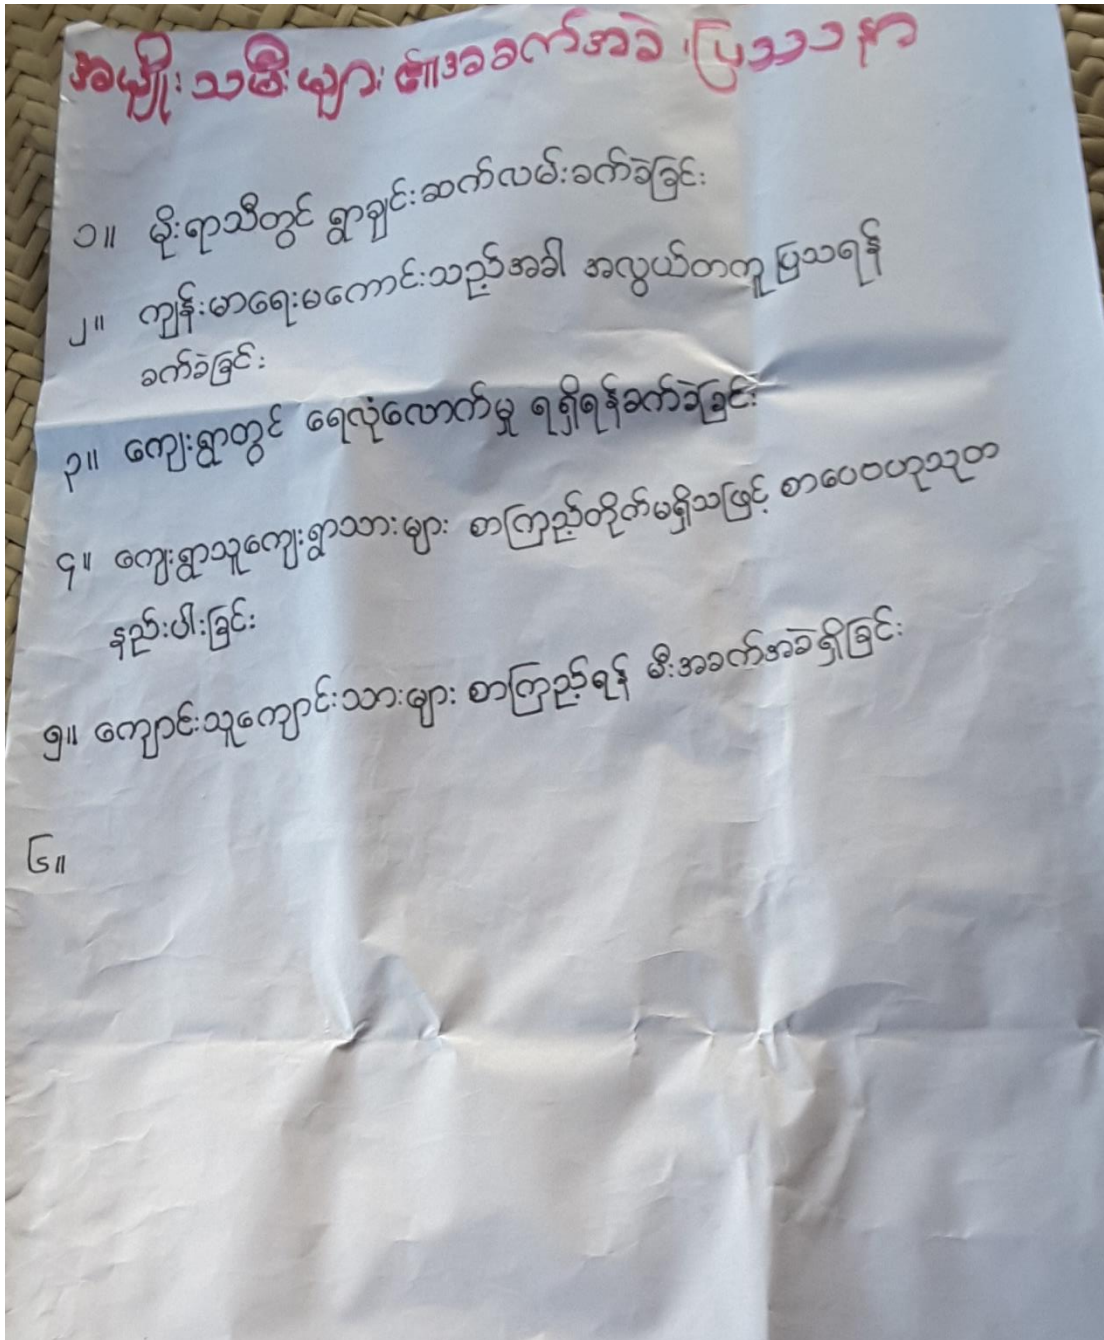 အမျိုးသမီးများ၏အခက်အခဲ ပြဿနာ
၁။ မိုးရာသီတွင် ရွာချင်းဆက်လမ်းခက်ခဲခြင်း
၂။ ကျန်းမာရေးမကောင်းသည့်အခါ အလွယ်တကူ ပြသရန်
ခက်ခဲခြင်း
၃။ ကျေးရွာတွင် ရေလုံလောက်မှု ရရှိရန်ခက်ခဲခြင်း
၄။ ကျေးရွာသူကျေးရွာသားများ စာကြည့်တိုက်မရှိသဖြင့် စာပေဗဟုသုတ
နည်းပါးခြင်း
၅။ ကျောင်းသူကျောင်းသားများ စာကြည့်ရန် မီးအခက်အခဲရှိခြင်း
၆။